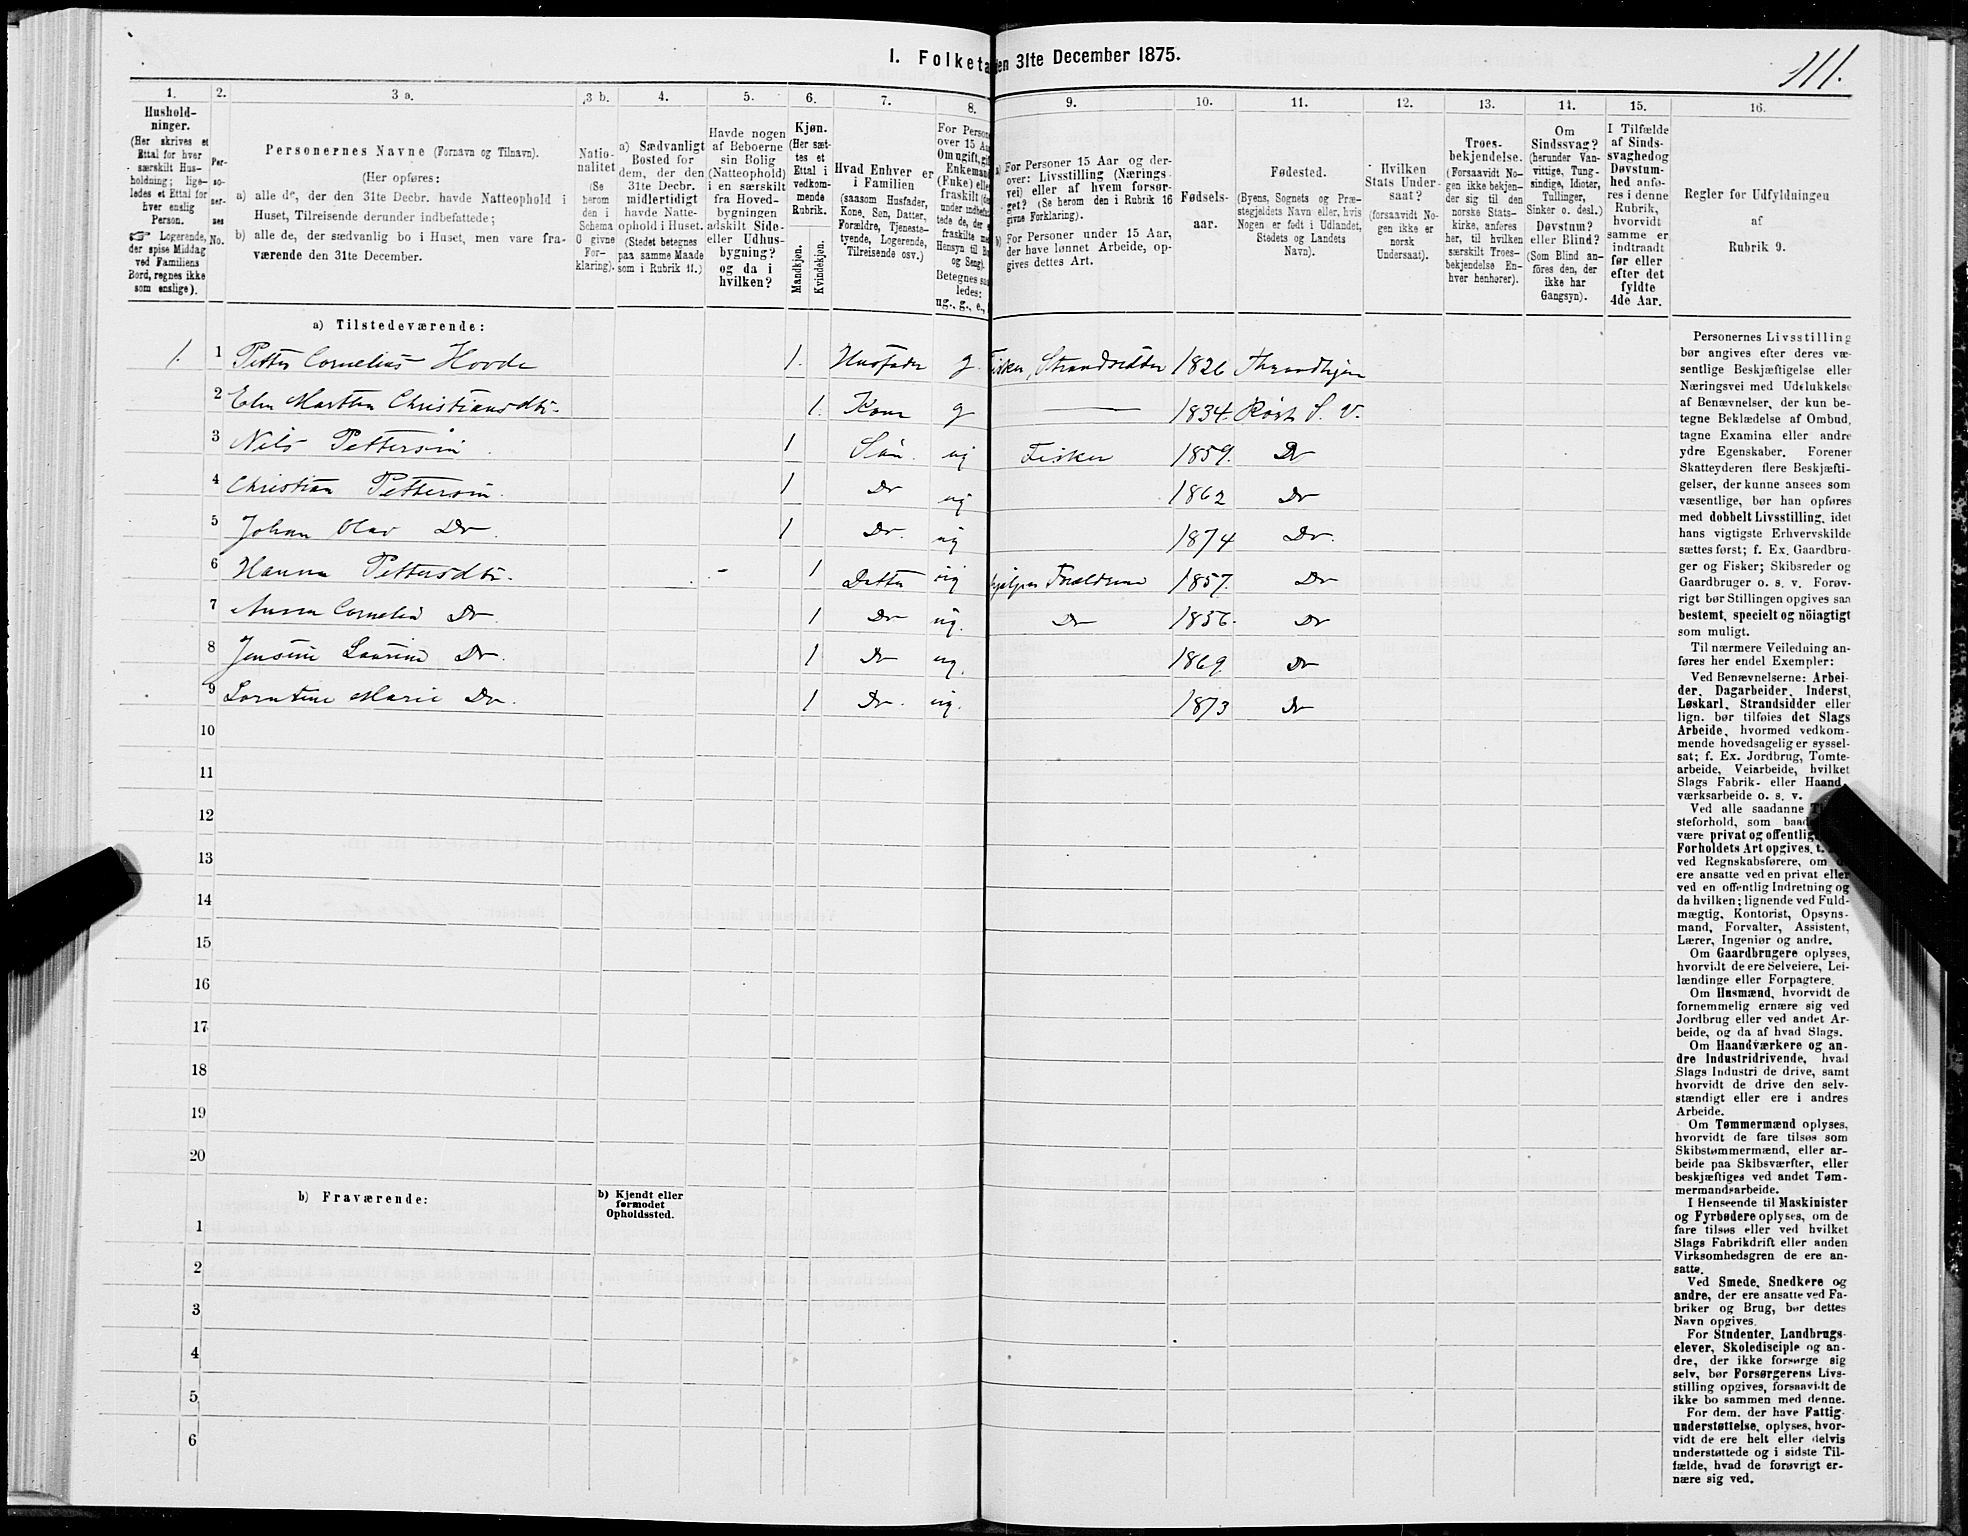 I. Folketa en 31te December 1875.
111.
1.
2.
3 a.
3 b.
4.
5.
6.
7.
8.
9.
10.
11.
12.
13.
14.
15.
16.
Hushold-
ninger.
(Her skrives et
Ettal for hver
særskilt Hus-
holdning; lige-
ledes et Ettal for
hver enslig
Person.
☞ Logerende,
der spise Middag
ved Familiens
Bord, regnes ikke
som enslige).
Per-
so-
ner-
nes
No.
Personernes Navne (Fornavn og Tilnavn).
(Her opføres:
a) alle de, der den 31te Decbr. havde Natteophold i
Huset, Tilreisende derunder indbefattede;
b) alle de, der sædvanlig bo i Huset, men vare fra-
værende den 31te December.
Natio-
nalitet
(Se
herom
den i
Schema
G givne
For-
klaring).
a) Sædvanligt
Bosted for
dem, der den
31te Decbr.
midlertidigt
havde Natte-
ophold i Huset.
(Stedet betegnes
paa samme Maade
som i Rubrik 11.)
Havde nogen
af Beboerne
sin Bolig
(Natteophold)
i en særskilt
fra Hoved-
bygningen
adskilt Side-
eller Udhus-
bygning?
og da i
hvilken?
Kjøn.
(Her sæt-
tes et
Ettal i
vedkom-
mende
Rubrik.
Mandkjøn.
Kvindekjøn.
Hvad Enhver er
i Familien
(saasom Husfader,
Kone, Søn, Datter,
Forældre, Tjeneste-
tyende, Logerende,
Tilreisende osv.)
For Person
over 15 Aa
Om ugift, gif
Enkemand
(Enke) elle
fraskilt
under indbefa
tede de, der
fraskilte
Hensyn til B
og Seng).
Betegnes saa
ledes:
ug., g., e.,
a) For Personer 15 Aar og der-
over: Livsstilling (Nærings-
vei) eller af hvem forsør-
get? (Se herom den i Rubrik 16
givne Forklaring).
b) For Personer under 15 Aar,
der have lønnet Arbeide, op-
gives dettes Art.
Fødsels-
aar.
Fødested.
(Byens, Sognets og Præ-
stegjeldets Navn eller, hvis
Nogen er født i Udlandet,
Stedets og Landets
Navn).
Hvilken
Stats Under-
saat?
(forsaavidt No-
gen ikke er
norsk
Undersaat).
Troes-
bekjendelse.
(Forsaavidt No-
gen ikke bekjen-
der sig til den
norske Stats-
kirke, anføres
her, til hvilken
særskilt Troes-
bekjendelse En-
hver henhører).
Om
Sindssvag?
(herunder Van-
vittige, Tung-
sindige, Idioter,
Tullinger,
Sinker o. desl.)
Døvstum?
eller Blind?
(Som Blind an-
føres den, der
ikke har
Gangsyn).
I Tilfælde
af Sinds-
svaghed og
Døvstum-
hed anfø-
res i denne
Rubrik,
hvorvidt
samme er
indtraadt
før eller
efter det
fyldte
4de Aar.
Regler for Udfyldningen
af
Rubrik 9.
a) Tilstedeværende:
1. 1 Petter Cornelius Hovde 1. Husfader g Fisker, Strandsidder 1826 Throndhjem
2 Elen Marthea Christiansdtr. 1. Kone g — 1834. Røst S. V.
3 Nils Pettersøn 1 Søn. ug Fisker 1859. Do
4 Christian Pettersøn. 1 Do ug 1862 Do
5 Johan Olav Do. 1 Do. ug 1874 Do.
6 Hanna Pettersdtr. - 1 Datter ug hjælper Forældrene 1857. Do
7 Anna Cornelia Do. 1 Do ug. Do 1856. Do
8 Jensine Laurine Do. 1 Do ug. 1869. Do
9 Lorntine Marie Do. 1 Do. ug. 1873 Do
10
11
12
13
14
15
16
17
18
19
20
b) Fraværende:
b) Kjendt eller
formodet
Opholdssted.
1
2
3
4
5
6
Personernes Livsstilling
bør angives efter deres væ-
sentlige Beskjæftigelse eller
Næringsvei med Udelukkelse
af Benævnelser, der kun be-
tegne Beklædelse af Ombud,
tagne Examina eller andre
ydre Egenskaber. Forener
Skatteyderen flere Beskjæfti-
gelser, der kunne ansees som
væsentlige, bør han opføres
med dobbelt Livsstilling, idet
hans vigtigste Erhvervskilde
sættes først; f. Ex. Gaardbru-
ger og Fisker; Skibsreder og
Gaardbruger o. s. v. Forøv-
rigt bør Stillingen opgives saa
bestemt, specielt og nøiagtigt
som muligt.
Til nærmere Veiledning an-
føres her endel Exempler:
Ved Benævnelserne: Arbei-
der, Dagarbeider, Inderst,
Løskarl, Strandsidder eller
lign. bør tilføies det Slags
Arbeide, hvormed vedkom-
mende hovedsagelig er syssel-
sat; f. Ex. Jordbrug, Tomte-
arbeide, Veiarbeide, hvilket
Slags Fabrik- eller Haand-
værksarbeide o. s. v.
Ved alle saadanne
steforhold, som baade
være privat og offentlig
Forholdets Art opgives, t.
ved Regnskabsførere, om
ere ansatte ved en privat eller
ved en offentlig Indretning og
da hvilken; lignende ved Fuld-
mægtig, Kontorist, Opsyns-
mand, Forvalter, Assistent,
Lærer, Ingeniør og andre.
Om Gaardbrugere oplyses,
hvorvidt de ere Selveiere, Lei-
lændinge eller Forpagtere.
Om Husmænd, hvorvidt de
fornemmelig ernære sig ved
Jordbrug eller ved andet Ar-
beide, og da af hvad Slags.
Om Haandværkere og an-
dre Industridrivende, hvad
Slags Industri de drive, samt
hvorvidt de drive den selv-
stændigt eller ere i andres
Arbeide.
Om Tømmermænd oplyses,
hvorvidt de fare tilsøs som
Skibstømmermænd, eller ar-
beide paa Skibsværfter, eller
beskjæftiges ved andet Tøm-
mermandsarbeide.
I Henseende til Maskinister
og Fyrbødere oplyses, om de
fare tilsøs eller ved hvilket
Slags Fabrikdrift eller anden
Virksomhedsgren de ere an-
satte.
Ved Smede, Snedkere og
andre, der ere ansatte ved Fa-
briker og Brug, bør dettes
Navn opgives.
For Studenter, Landbrugs-
elever, Skoledisciple og an-
dre, der ikke forsørge sig
selv, bør Forsørgerens Livs-
stilling opgives, forsaavidt de
ikke bo sammen med denne.
For dem, der have Fattig-
understøttelse, oplyses, hvor-
vidt de ere helt eller delvis
understøttede og i sidste Til-
fælde, hvad de forøvrigt er-
nære sig ved.